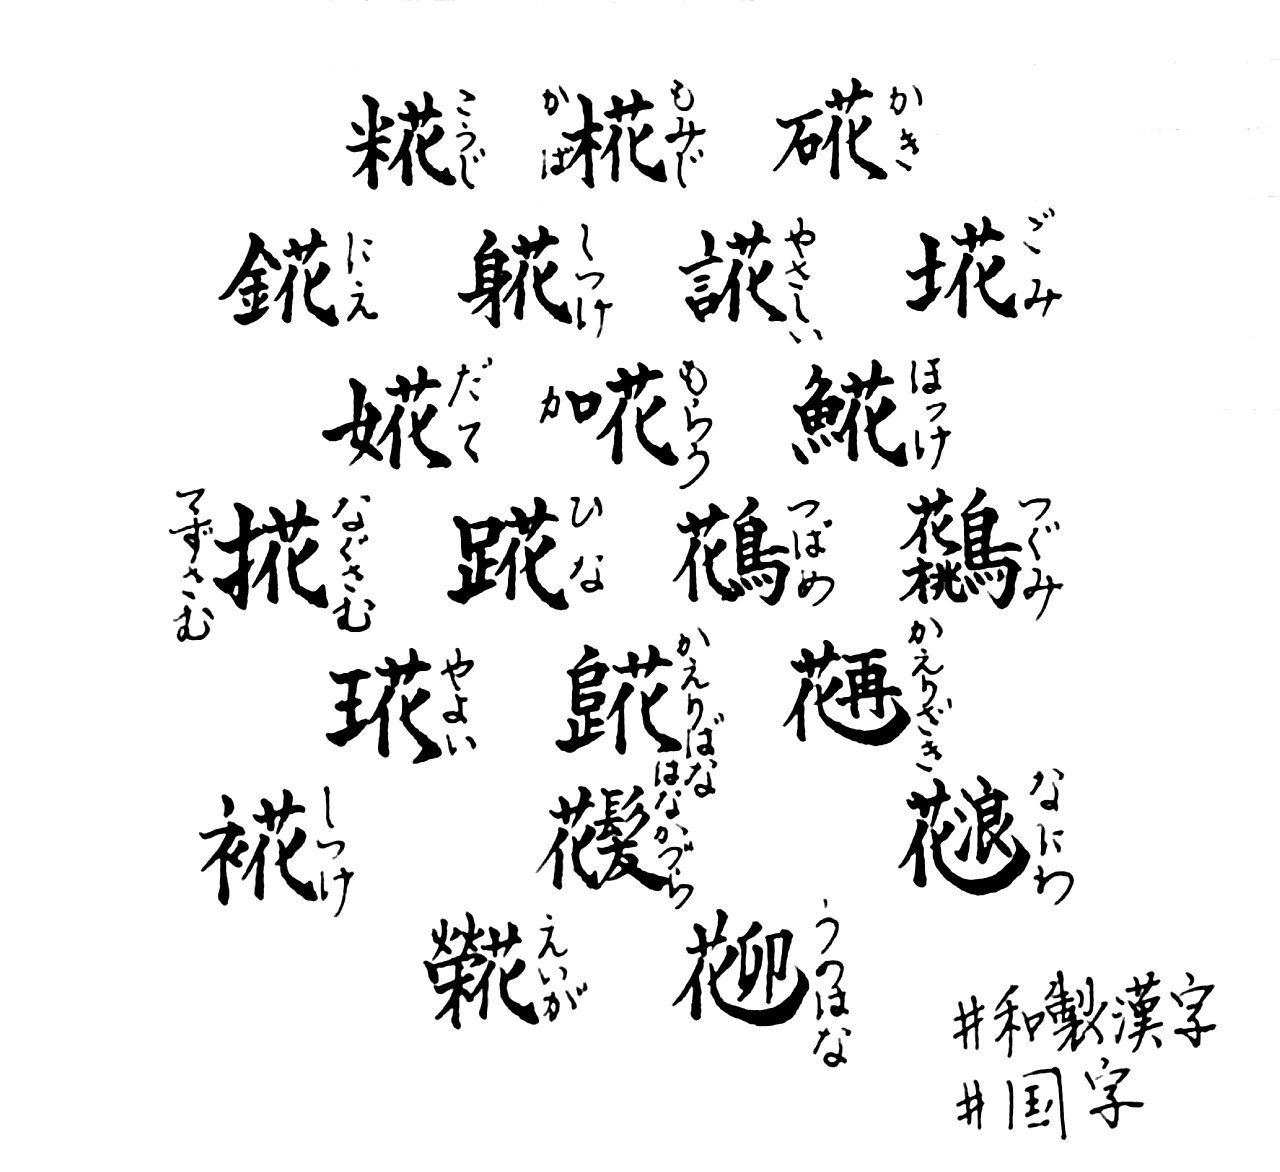 糀 こうじ 椛 もみじ かば 硴 かき
錵 にえ しつけ 誮 やさしい 埖 ごみ
婲 だて もらう 𩸽 ほっけ
なぐさむ てずさむ ひな つばめ つぐみ
やよい かえりばな かえりざき
しつけ はなかづら なにわ
えいが うのはな
#和製漢字
#国字